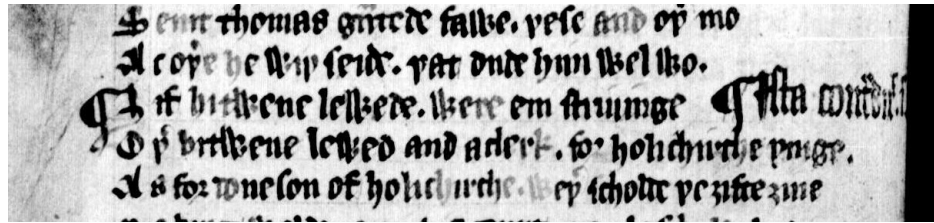 Seint thomas g̃ntede sawe. þese and oþ̉ mo
A c oþ̉e he wiþ seide. þat dude him wel wo.
¶ ȝ if bitwene lewede. were eni striuinge ¶ Ista
O þ̉ bitwene lewed and a clerk. for holichirche þinge.
A s for voneson of holichirche. weþ̉ scholde þe ȝifte ȝiue